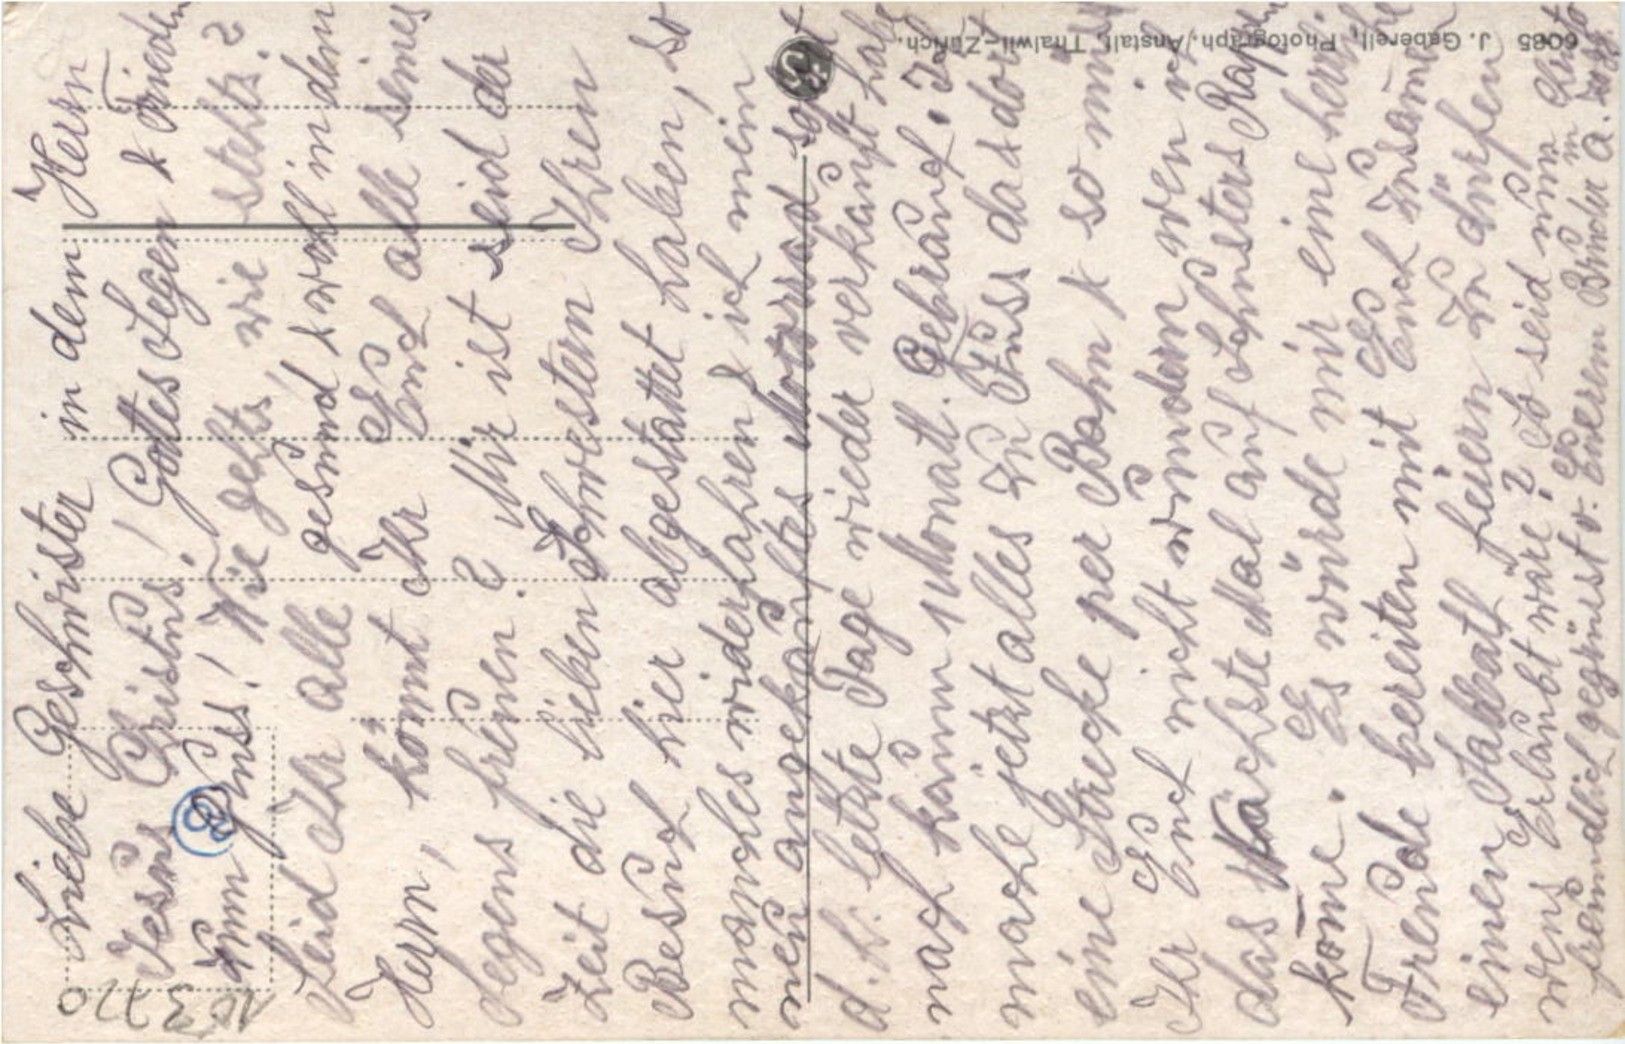 Liebe Geschwister in dem Herrn
Jesus Christus! Gottes Segen & Frieden
zum Gruss! Wie gehts, wie stehts?
Seid Ihr alle gesund & wohl in dem
Herrn, könnt Ihr Euch alle seines
Segens freuen? Mir ist seid der
Zeit die lieben Schwestern Ihren
Besuch hier abgestattet haben, so
manches widerfahren & ich mein
neu angekauftes Motorrad samt
d. h. letzte Tage wieder verkauft habe
nach kaum 1 Monatl. Gebrauch. Ich
mache jetzt alles zu Fuss das dort
eine Strecke per Bahn & so müsst
Ihr Euch nicht wundern wen ich
das Nächste Mal auf Schusters Rapen
kome. Es würde mir eine herrliche
Freude bereiten mit Euch zusamen
einen Sabbath feiern zu dürfen
wens Erlaubt wäre? So seid nun
freundlich gegrüsst v. Euerem Bruder in Christo
A.
163770
6085 J. Gaberell, Photograph. Anstalt, Thalwil-Zürich.